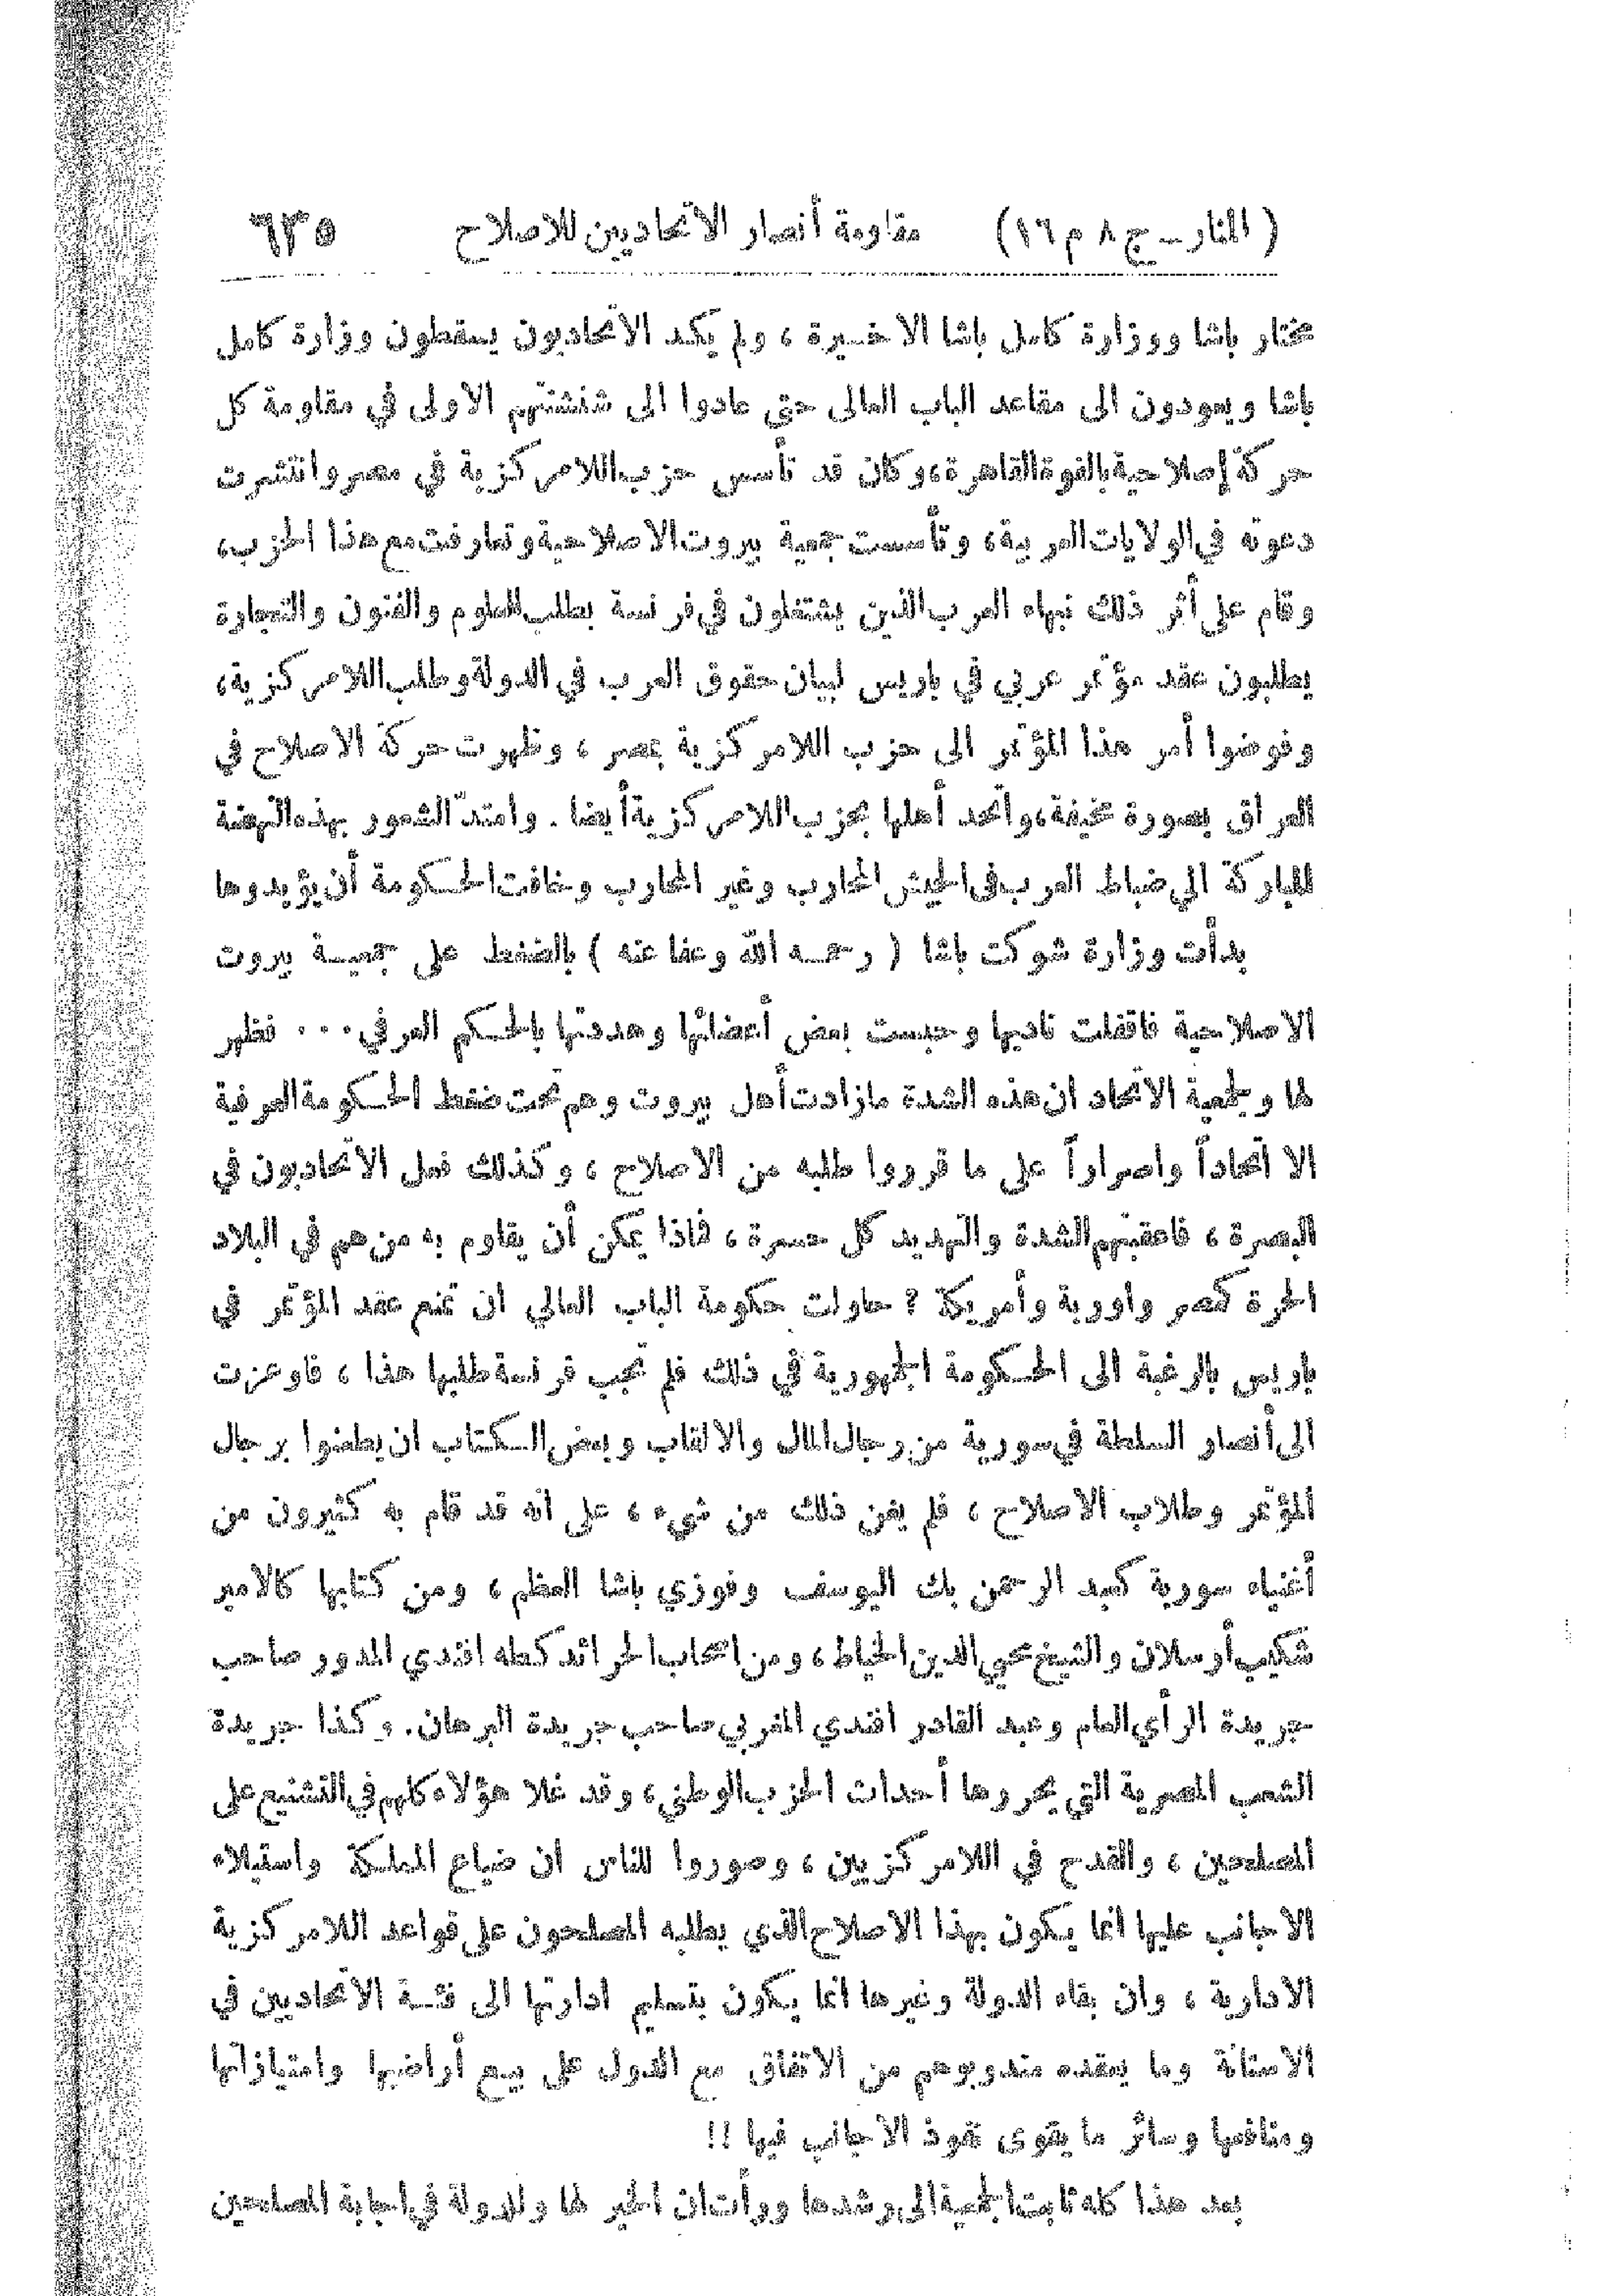 ( المنار ــ ج ٨ م ١٦ ) مقاومة أنصار الاتحاديين للاصلاح ٦٣٥
مختار باشا ووزارة كامل باشا الاخــيرة ، ولم يكد الاتحاديون يسقطون وزارة كامل
باشا ويعودون الى مقاعد الباب العالى حتى عادوا الى شنشنتهم الاولى في مقاومة كل
حركة إصلاحية بالقوة القاهرة ، وكان قد تأسس حزب اللامركزية في مصر وانتشرت
دعوته في الولايات العربية ، وتأسست جمعية بيروت الاصلاحية وتعارفت مع هذا الحزب ،
وقام على أثر ذلك نبهاء العرب الذين يشتغلون في فرنسة بطلب العلوم والفنون والتجارة
يطلبون عقد مؤتمر عربي في باريس لبيان حقوق العرب في الدولة وطلب اللامركزية ،
وفوضوا أمر هذا المؤتمر الى حزب اللامركزية بمصر ، وظهرت حركة الاصلاح في
العراق بصورة مخيفة ، واتحد أهلها بحزب اللامركزية أيضا . وامتدّ الشعور بهذه النهضة
المباركة الى ضباط العرب في الجيش المحارب وغير المحارب وخافت الحكومة أن يؤيدوها
بدأت وزارة شوكت باشا ( رحمــه الله وعفا عنه ) بالضغط على جمعيــة بيروت
الاصلاحية فاقفلت ناديها وحبست بعض أعضائها وهددتها بالحكم العرفي . . . فظهر
لها ولجمعية الاتحاد ان هذه الشدة ما زادت أهل بيروت وهم تحت ضغط الحكومة العرفية
الا اتحاداً واصراراً على ما قرروا طلبه من الاصلاح ، وكذلك فعل الاتحاديون في
البصرة ، فاعقبتهم الشدة والتهديد كل حسرة ، فماذا يمكن أن يقاوم به من هم في البلاد
الحرة كمصر واوربة وأمريكة ؟ حاولت حكومة الباب العالي ان تمنع عقد المؤتمر في
باريس بالرغبة الى الحكومة الجمهورية في ذلك فلم تجب فرنسة طلبها هذا ، فاوعزت
الى أنصار السلطة في سورية من رجال المال والالقاب وبعض الكتاب ان يطعنوا برجال
المؤتمر وطلاب الاصلاح ، فلم يغن ذلك من شيء ، على انه قد قام به كثيرون من
أغنياء سورية كعبد الرحمن بك اليوسف وفوزي باشا العظم ، ومن كتابها كالامير
شكيب أرسلان والشيخ محيي الدين الخياط ، ومن اصحاب الجرائد كطه افندي المدور صاحب
جريدة الرأي العام وعبد القادر افندي المغربي صاحب جريدة البرهان . وكذا جريدة
الشعب المصرية التي يحررها أحداث الحزب الوطني ، وقد غلا هؤلاء كلهم في التشنيع على
المصلحين ، والقدح في اللامركزيين ، وصوروا للناس ان ضياع المملكة واستيلاء
الاجانب عليها انما يكون بهذا الاصلاح الذي يطلبه المصلحون على قواعد اللامركزية
الادارية ، وان بقاء الدولة وغيرها انما يكون بتسليم ادارتها الى فئــة الاتحاديين في
الاستانة وما يعقده مندوبوهم من الاتفاق مع الدول على بيع أراضيها وامتيازاتها
ومنافعها وسائر ما يقوى نفوذ الاجانب فيها !!
بعد هذا كله ثابت الجمعية الى رشدها ورأت ان الخير لها وللدولة في اجابة المصلحين